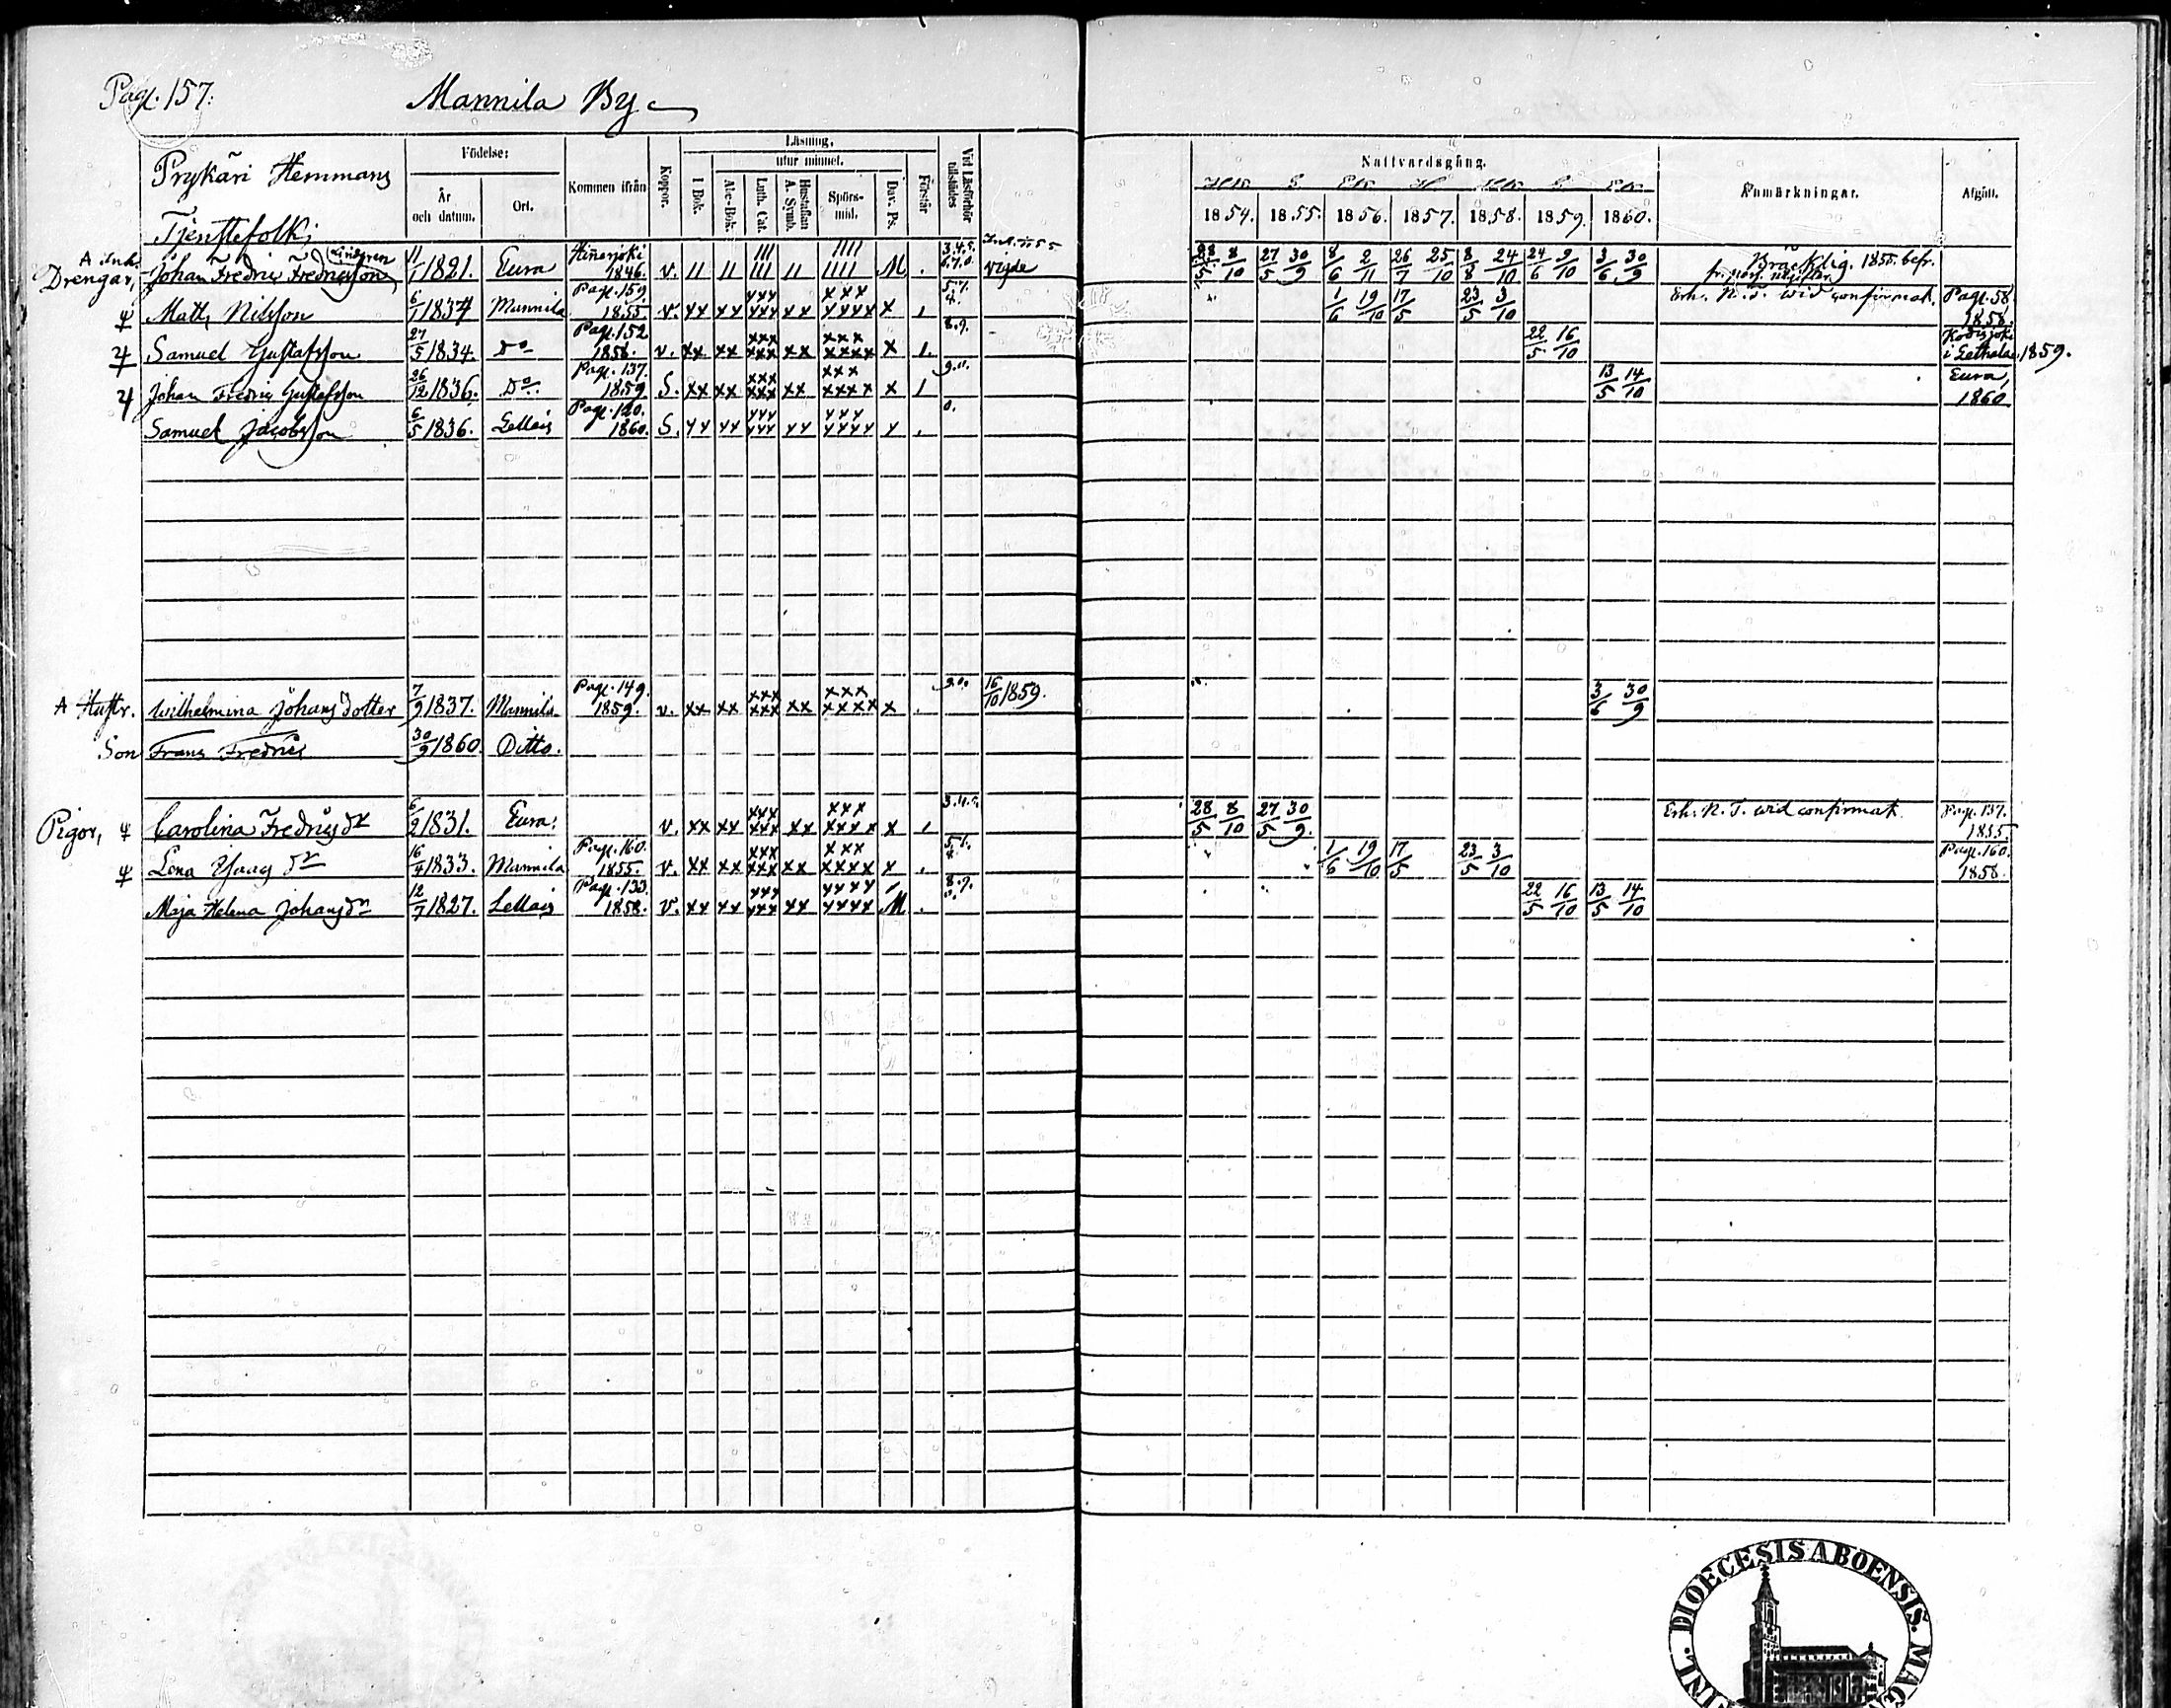 Pag. 157.
Mannila By
Prykäri Hemmans
Tjenstefolk;
Födelse:
År och datum.
Ort.
Kommen ifrån
Koppor.
Läsning,
utur minnet.
I Bok.
Abc-Bok.
Luth. Cat.
Hustaflan A. Symb.
Spörs-mål.
Dav. Ps.
Förstår
Vid Läsförhör tillstädes
Nattvardsgång.
1854. 1855. 1856. 1857. 1858. 1859. 1860.
Anmärkningar.
Afgått.
A Inh. Lindgren
Drengar, Johan Fredric Fredricsson 11/1 1821. Eura Hinnerjoki 1846. v. M. vigde 28/5 8/10 27/5 30/9 8/6 2/11 26/7 25/10 8/8 24/10 24/6 9/10 3/6 30/9 Bräcklig. 1855. befr. fr.
Math. Nilsson 6/1 1834 Mannila Pag. 159. 1855. v. xx xx xxx xxx xx xxx xxxx x 1/6 19/10 17/5 23/5 3/10 Erh. N. T. wid confirmat. Pag. 58. 1858.
Samuel Gustafsson 27/5 1834. Do Pag. 152 1858. v. xx xx xxx xxx xx xxx xxxx x 8.9. 22/5 16/10 i Lethala 1859.
Johan Fredric Gustafsson 26/12 1836. Do Pag. 137. 1859 S. xx xx xxx xxx xx xxx xxxx x 13/5 14/10 Eura, 1860
Samuel Jacobsson 6/5 1836. Lellais Pag. 120. 1860. S. xx xx xxx xxx xx xxx xxxx x 0.
A Hustr. Wilhelmina Johansdotter 7/9 1837. Mannila Pag. 149. 1859. v. xx xx xxx xxx xx xxx xxxx x 9.0. 16/10 1859. 3/6 30/9
Son Frans Fredric 30/9 1860. Ditto.
Pigor, Carolina Fredricsdr 6/2 1831. Eura. v. xx xx xxx xxx xx xxx xxxx x 28/5 8/10 27/5 30/9 Erh. N. T. wid confirmat. Pag. 137. 1855.
Lena Isaacsdr 16/4 1833. Mannila Pag. 160. 1855. v. xx xx xxx xxx xx xxx xxxx x 1/6 19/10 17/5 23/5 3/10 Pag. 160. 1858.
Maja Helena Johansdr 12/7 1827. Lellais Pag. 133. 1858. v. xx xx xxx xxx xx xxxx xxxx M 22/5 16/10 13/5 14/10
DIOECESIS ABOENSIS.